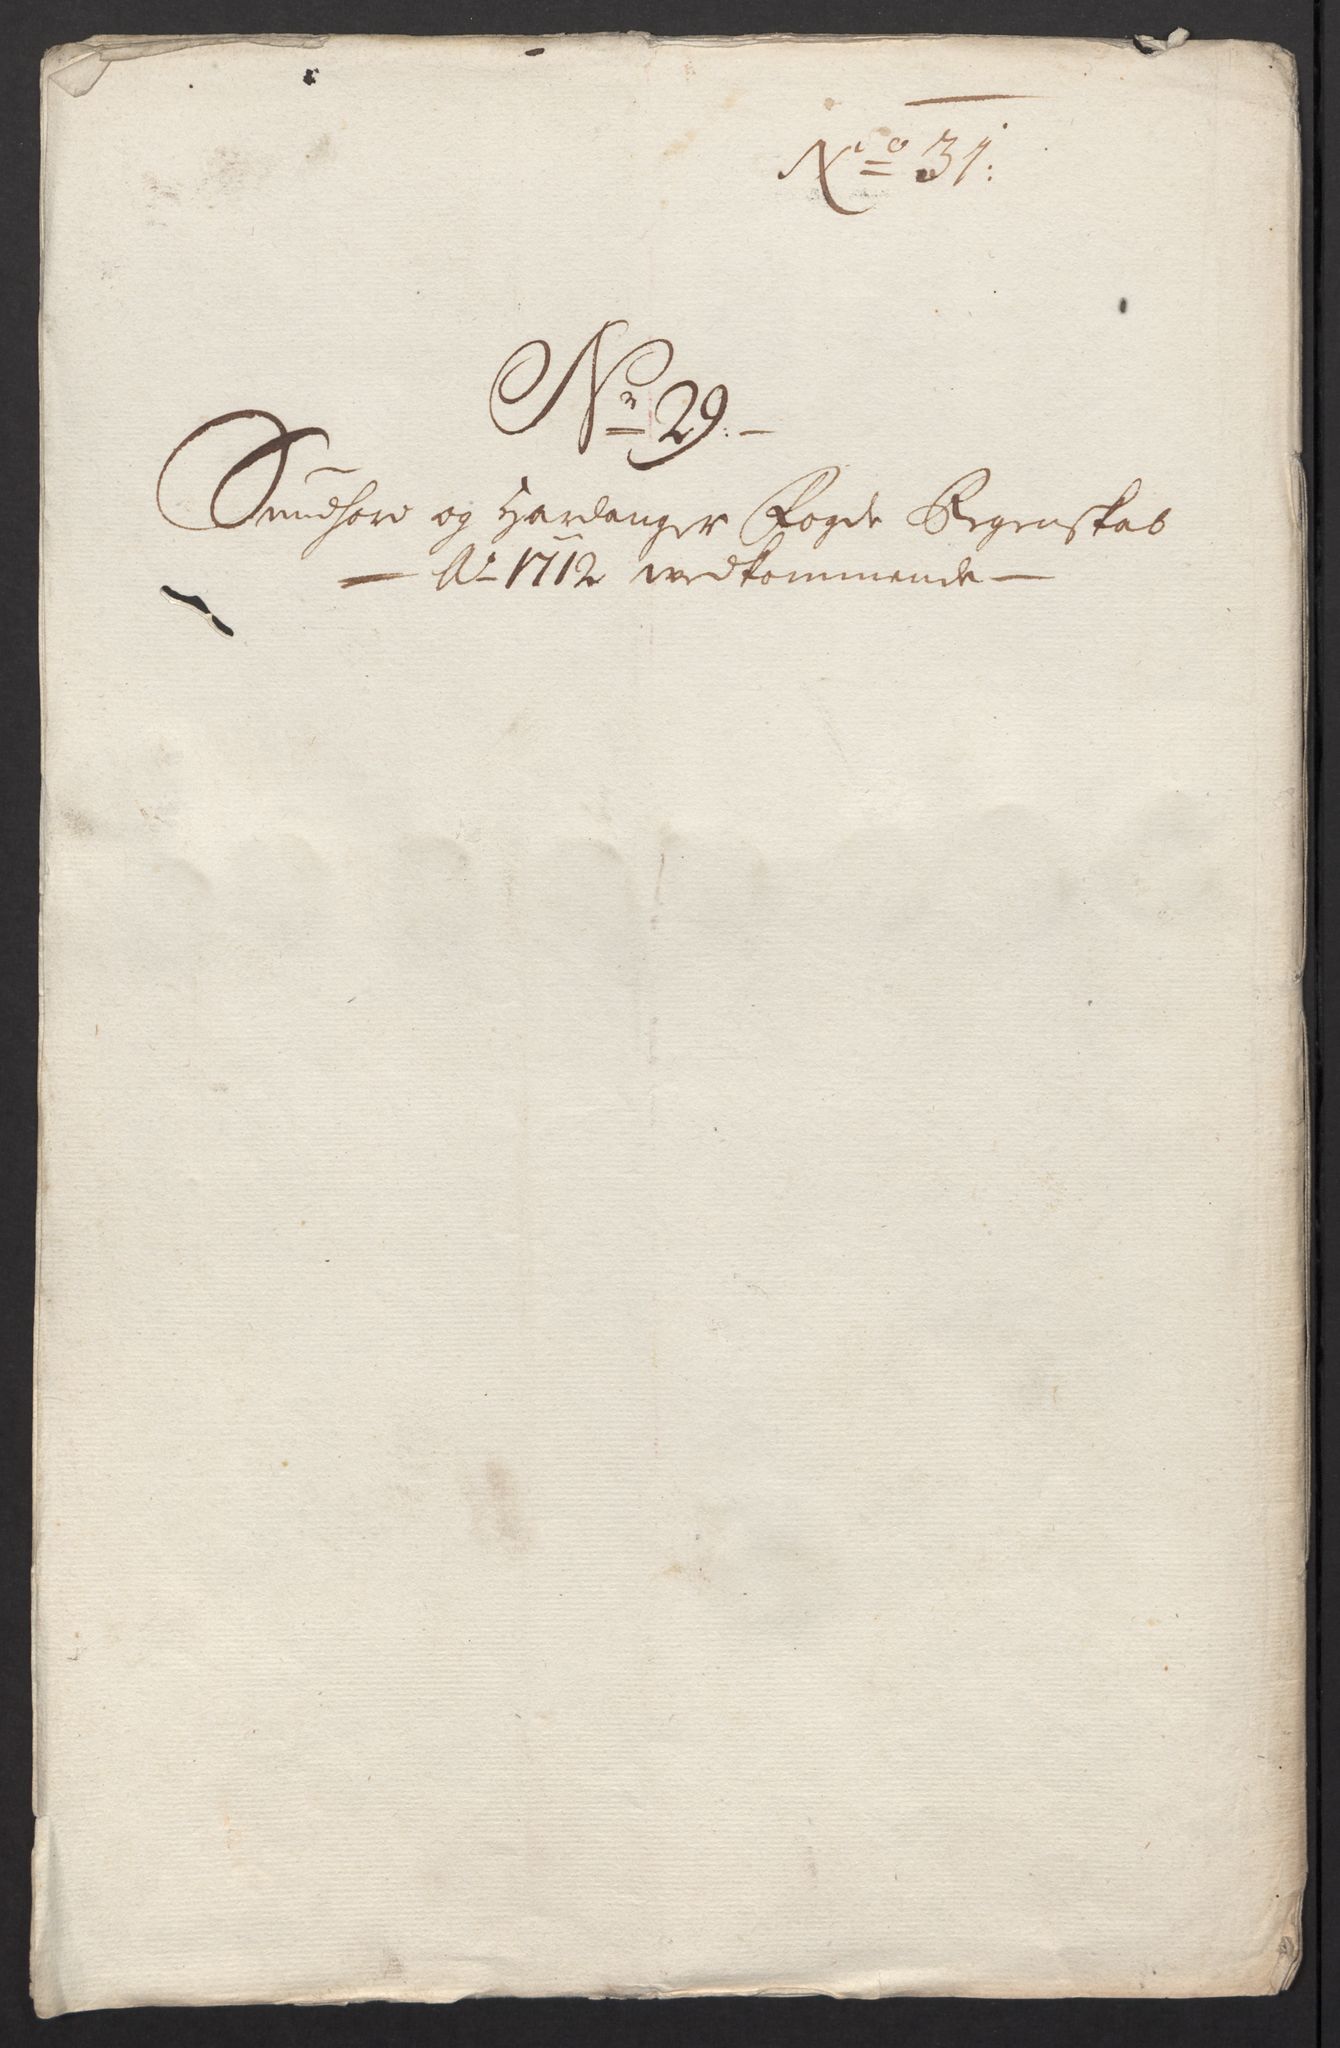 No 31:
No 29:
Sundhord og Hardanger Fogde Regenskab
Ao 1712 vedkommende